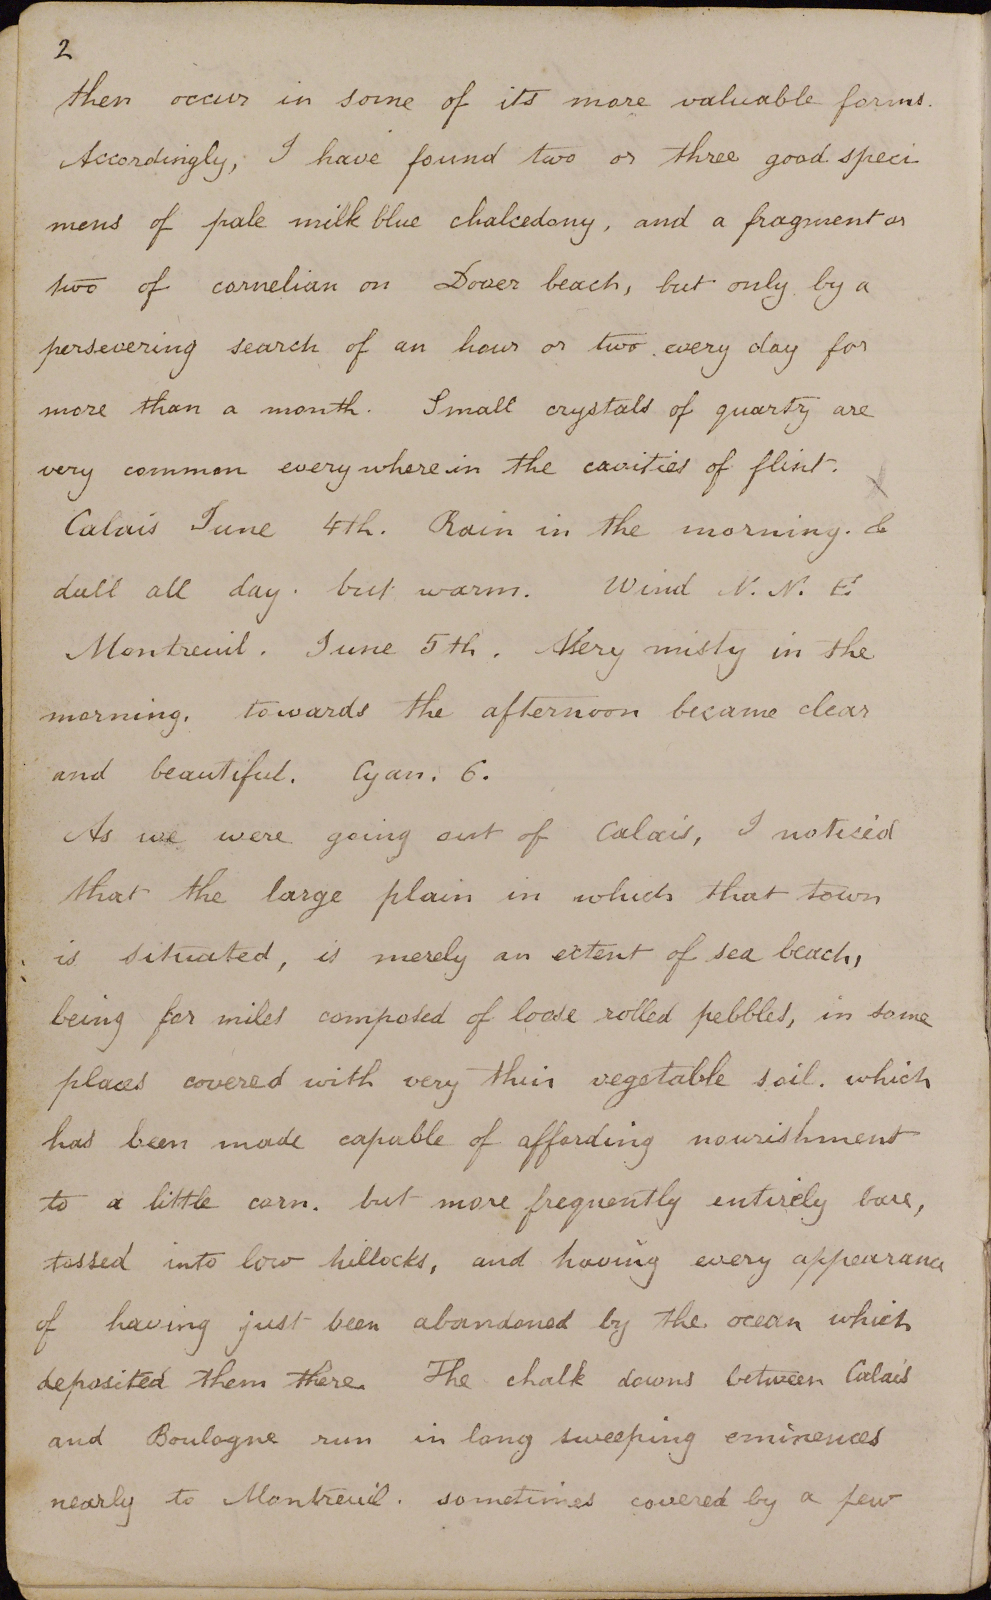 2
then occur in some of its more valuable forms.
Accordingly, I have found two or three good speci
mens of pale milk blue chalcedony, and a fragment or
two of cornelian on Dover beach, but only by a
persevering search of an hour or two every day for
more than a month. Small crystals of quartz are
very common everywhere in the cavities of flint.
Calais June 4th. Rain in the morning. &
dull all day. but warm. Wind N. N. E.
Montreuil. June 5th. Very misty in the
morning. towards the afternoon became clear
and beautiful. Cyan. 6.
As we were going out of Calais, I noticed
that the large plain in which that town
is situated, is merely an extent of sea beach,
being for miles composed of loose rolled pebbles, in some
places covered with very thin vegetable soil. which
has been made capable of affording nourishment
to a little corn. but more frequently entirely bare,
tossed into low hillocks, and having every appearance
of having just been abandoned by the ocean which
deposited them there. The chalk downs between Calais
and Boulogne run in long sweeping eminences
nearly to Montreuil. sometimes covered by a few